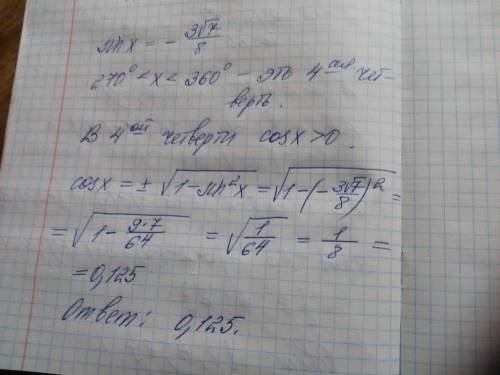 sin x = - 3√7/8
270° < x < 360° - это 4-ая чет-
верть.
В 4-ой четверти cos x > 0.
cos x = ± √(1 - sin²x) = √(1 - (-3√7/8)²) =
= √(1 - 9·7/64) = √(1/64) = 1/8 =
= 0,125
Ответ: 0,125.